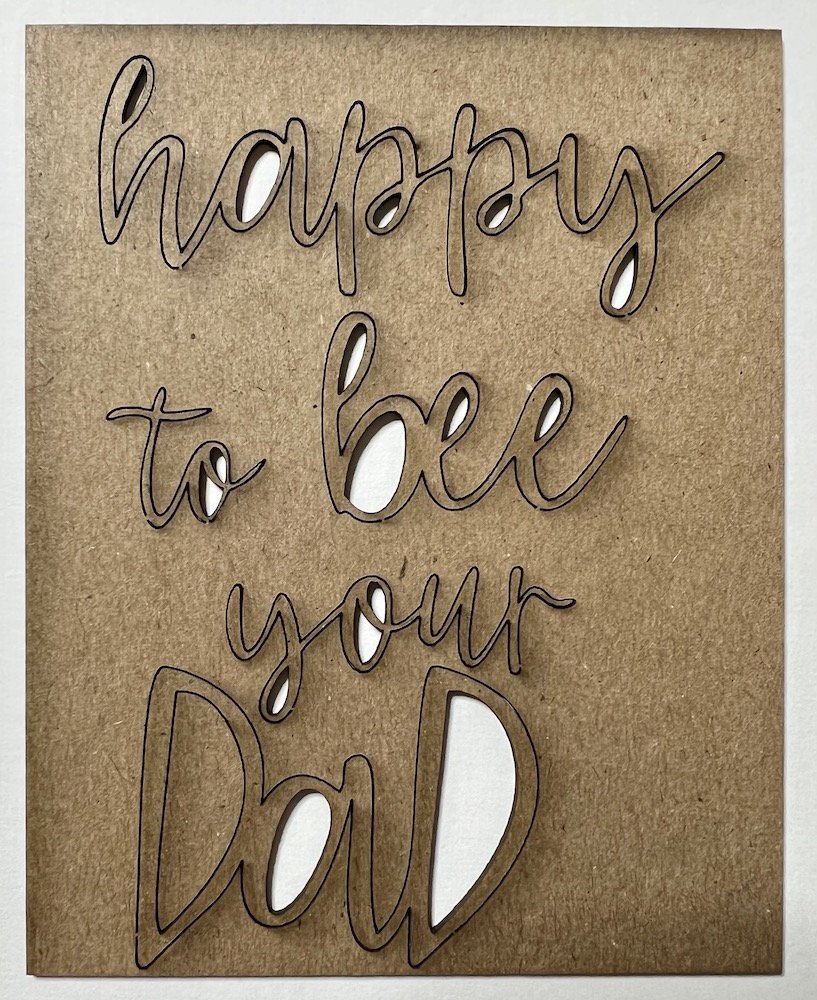 happy
to bee
your
DaD